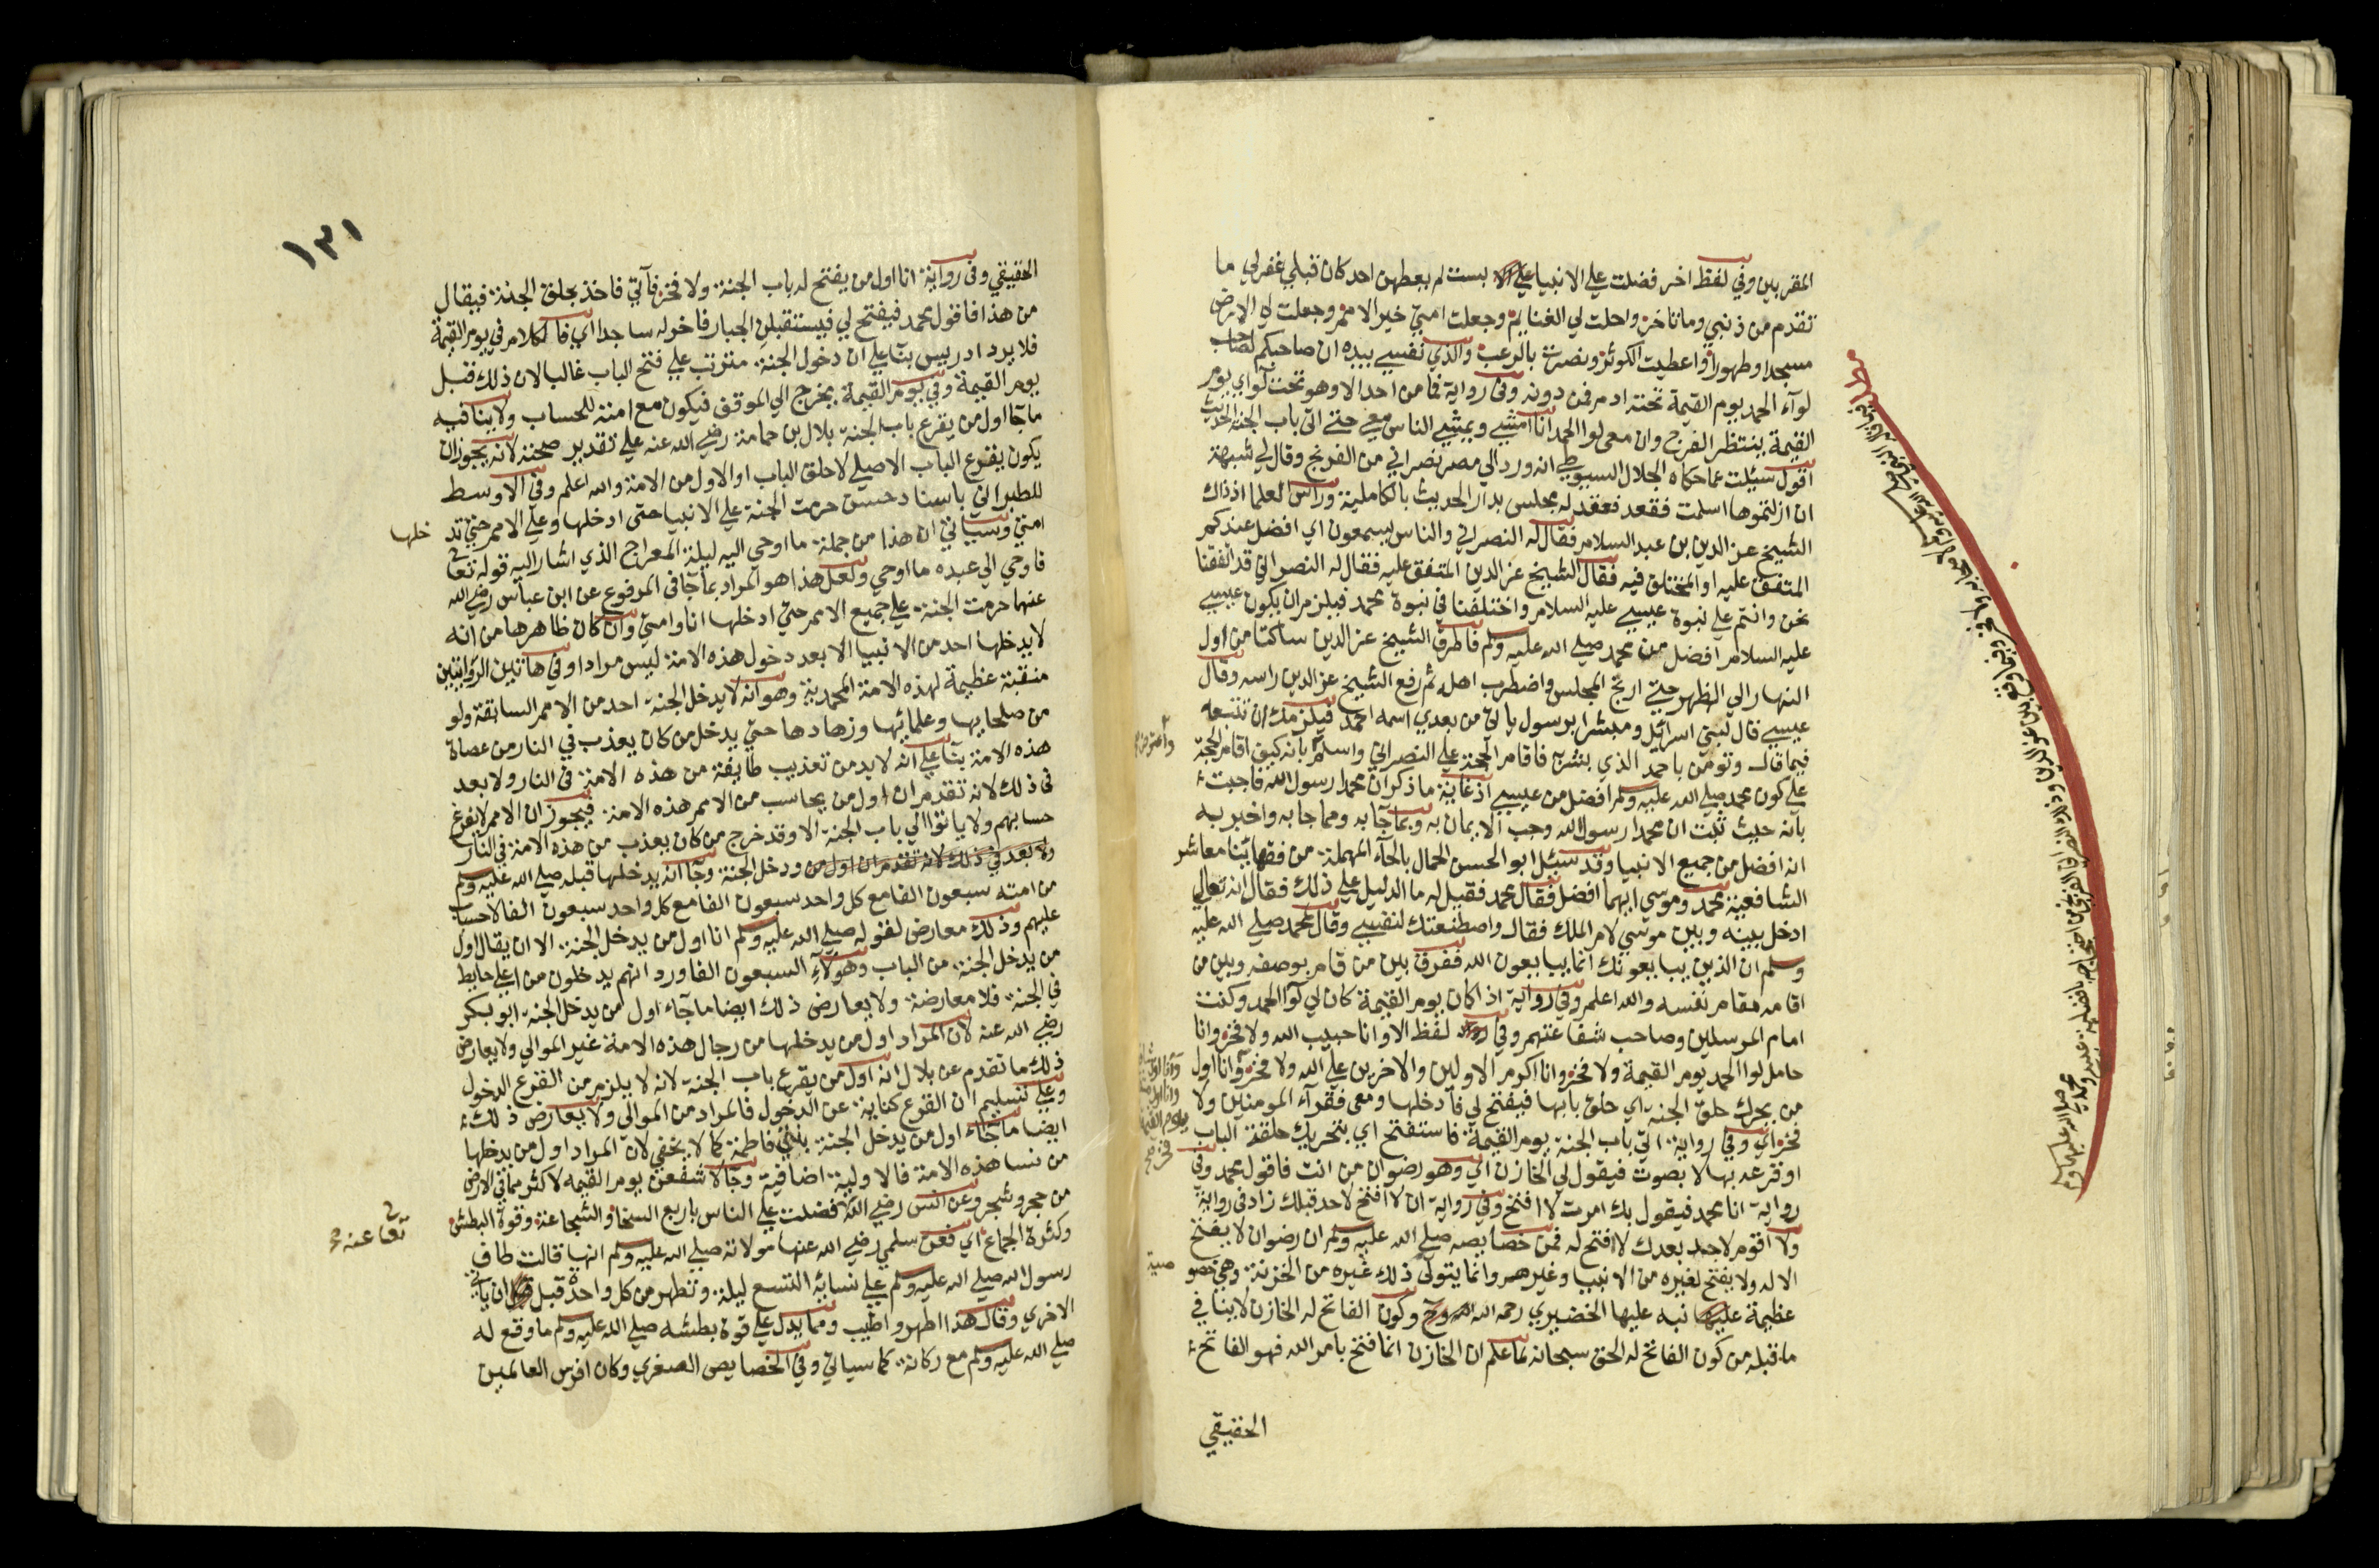 المقربين وفي لفظ اخر فضلت علي الانبيا بست لم يعطهن احد كان قبلي غفر لي ما
تقدم من ذنبي وما تاخر واحلت لي الغنايم وجعلت امتي خير الامم وجعلت لي الارض
مسجدا وطهورا واعطيت الكوثر ونصرت بالرعب والذي نفسي بيده ان صاحبكم لصاحب
لوآء الحمد يوم القيمة تحته ادم فمن دونه وفي رواية فما من احد الا وهو تحت لوآي يوم
القيمة ينتظر الفرج وان معي لوا الحمد انا امشي ويمشي الناس معي حتي اتي باب الجنة الحديث
اقول سئلت عما حكاه الجلال السيوطي انه ورد الي مصر نصراني من الفرنج وقال لي شبهة
ان ازلتموها اسلمت فقعد فعقد له مجلس بدار الحديث بالكاملية وراس العلما اذ ذاك
الشيخ عز الدين بن عبد السلام فقال له النصراني والناس يسمعون اي افضل عندكم
المتفق عليه او المختلف فيه فقال الشيخ عز الدين المتفق عليه فقال له النصراني قد اتفقنا
نحن وانتم علي نبوة عيسي عليه السلام واختلفنا في نبوة محمد فيلزم ان يكون عيسي
عليه السلام افضل من محمد صلي الله عليه وسلم فاطرق الشيخ عز الدين ساكتا من اول
النهار الي الظهر حتي ارتج المجلس واضطرب اهله ثم رفع الشيخ عز الدين راسه وقال
عيسي قال لبني اسرائل ومبشرا برسول ياتي من بعدي اسمه احمد فيلزمك ان تتبعه
فيما قال وتومن باحمد الذي بشر به فاقام الحجة علي النصراني واسلم بانه كيف اقام الحجة
علي كون محمد صلي الله عليه وسلم افضل من عيسي اذ غاية ما ذكر ان محمدا رسول الله فاجبت
بانه حيث ثبت ان محمدا رسول الله وجب الايمان به وبما جآ به ومما جا به واخبر به
انه افضل من جميع الانبيا وقد سئل ابو الحسن الحمال بالحآء المهملة من فقهائنا معاشر
الشافعية محمد وموسي ايهما افضل فقال محمد فقيل له ما الدليل علي ذلك فقال انه تعالي
ادخل بينه وبين موسي لام الملك فقال واصطنعتك لنفسي وقال لمحمد صلي الله عليه
وسلم ان الذين يبايعونك انما يبايعون الله ففرق بين من قام بوصفه وبين من
اقامه مقام نفسه والله اعلم وفي رواية اذا كان يوم القيمة كان لي لوا الحمد وكنت
امام المرسلين وصاحب شفاعتهم وفي لفظ الا وانا حبيب الله ولا فخر وانا
حامل لوا الحمد يوم القيمة ولا فخر وانا اكرم الاولين والاخرين علي الله ولا فخر وانا اول
من يحرك حلق الجنة اي حلق بابها فيفتح لي فآ دخلها ومعي فقرآء المومنين ولا
فخر اي وفي رواية اتي باب الجنة يوم القيمة فاستفتح اي بتحريك حلقة الباب
او قرعه بها لا بصوت فيقول لي الخازن اي وهو رضوان من انت فاقول محمد وفي
رواية انا محمد فيقول بك امرت لا افتح وفي رواية ان لا افتح لاحد قبلك زاد في رواية
ولا اقوم لاحد بعدك لا افتح له فمن خصايصه صلي الله عليه وسلم ان رضوان لا يفتح
الا له ولا يفتح لغيره من الانبيا وغيرهم وانما يتولي ذلك غيره من الخزنة وهي خصو
صية
عظيمة نبه عليها الخضيري رحمه الله وكون الفاتح له الخازن لا ينافي
ما قبله من كون الفاتح له الحق سبحانه لما علم ان الخازن انما فتح بامر الله فهو الفاتح
الحقيقي
١٣١
الحقيقي وفي رواية انا اول من يفتح له باب الجنة ولا فخر فآتي فاخذ بحلق الجنة فيقال
من هذا فاقول محمد فيفتح لي فيستقبلني الجبار فاخر له ساجدا اي فالكلام في يوم القيمة
فلا يرد ادريس بنآ علي ان دخول الجنة مترتب علي فتح الباب غالبا لان ذلك قبل
يوم القيمة وفي يوم القيمة يخرج الي الموقف فيكون مع امته للحساب ولا ينافيه
ما جآ اول من يقرع باب الجنة بلال بن حمامة رضي الله عنه علي تقدير صحته لانه يجوز ان
يكون يقرع الباب الاصلي لا حلق الباب او الاول من الامة والله اعلم وفي الاوسط
للطبراني باسناد حسن حرمت الجنة علي الانبيا حتى ادخلها وعلي الامم حتي تد
خلها
امتي وسياتي ان هذا من جملة ما اوحي اليه ليلة المعراج الذي اشار اليه قوله تعا
فاوحي الي عبده ما اوحي ولعل هذا هو المراد بما جآ في المرفوع عن ابن عباس رضي الله
عنهما حرمت الجنة علي جميع الامم حتي ادخلها انا وامتي وان كان ظاهرها من انه
لا يدخلها احد من الانبيا الا بعد دخول هذه الامة ليس مرادا وفي هاتين الروايتين
منقبة عظيمة لهذه الامة المحمدية وهو انه لا يدخل الجنة احد من الامم السابقة ولو
من صلحايها وعلمائها وزهادها حتي يدخل من كان يعذب في النار من عصاة
هذه الامة بنآ علي انه لا بد من تعذيب طايفة من هذه الامة في النار ولا بعد
في ذلك لانه تقدم ان اول من يحاسب من الامم هذه الامة فيجوز ان الامم لا يفرغ
حسابهم ولا ياتوا الي باب الجنة الا وقد خرج من كان يعذب من هذه الامة في النار
ولا بعد في ذلك لانه تقدم ان اول من ودخل الجنة وجآ انه يدخلها قبله صلي الله عليه وسلم
من امته سبعون الفا مع كل واحد سبعون الفا مع كل واحد سبعون الفا لا حساب
عليهم وذلك معارض لقوله صلي الله عليه وسلم انا اول من يدخل الجنة الا ان يقال اول
من يدخل الجنة من الباب وهولآء السبعون الفا ورد انهم يدخلون من اعلي حايط
في الجنة فلا معارضة ولا يعارض ذلك ايضا ما جآء اول من يدخل الجنة ابو بكر
رضي الله عنه لان المراد اول من يدخلها من رجال هذه الامة غير الموالي ولا يعارض
ذلك ما تقدم عن بلال انه اول من يقرع باب الجنة لانه لا يلزم من القرع الدخول
وعلي تسليم ان القرع كناية عن الدخول فالمراد من الموالي ولا يعارض ذلك
ايضا ما جآء اول من يدخل الجنة بنتي فاطمة كما لا يخفي لان المراد اول من يدخلها
من نسا هذه الامة فالاولية اضافية وجآ لاشفعن يوم القيمه لاكثر مما في الارض
من حجر وشجر وعن انس رضي الله فضلت علي الناس باربع السخا والشجاعة وقوة البطش
تعا عنه
وكثرة الجماع اي فعن سلمي رضي الله عنها مولاته صلي الله عليه وسلم انها قالت طاف
رسول الله صلي الله عليه وسلم علي نسائه التسع ليلة وتطهر من كل واحدة قبل ان ياتي
الاخري وقال هذا اطهر واطيب ومما يدل علي قوة بطشه صلي الله عليه وسلم ما وقع له
صلي الله عليه وسلم مع ركانة كما سياتي وفي الخصايص الصغري وكان افرس العالمين